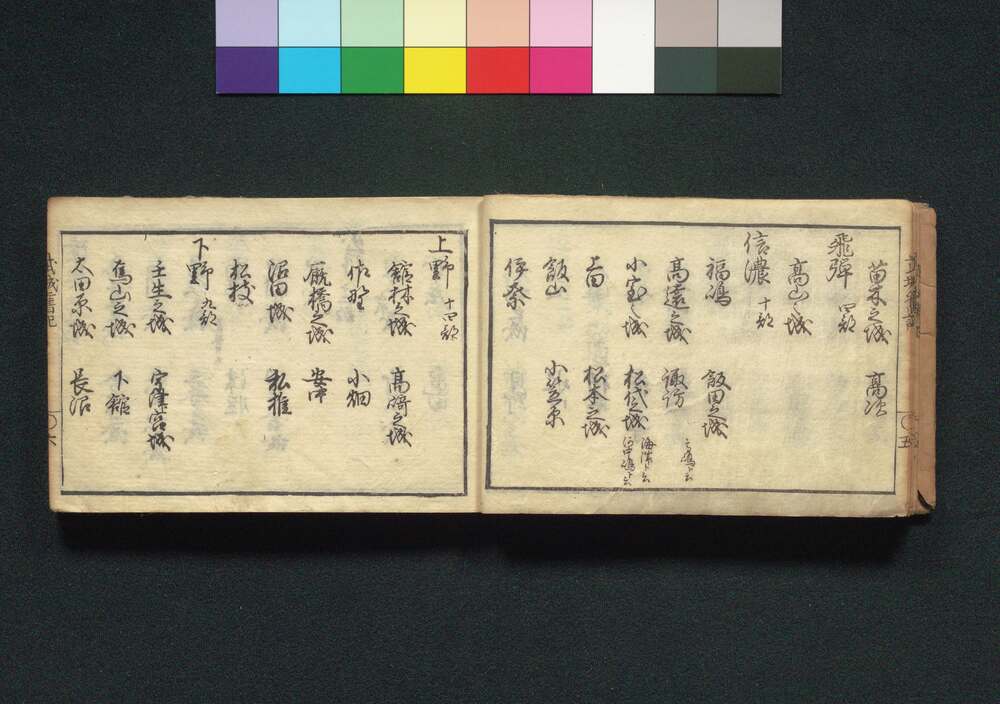 苗木之城 高次
飛弾 四郡
高山之城
信濃 十郡
福嶋 飯田之城
高遠之城 諏訪 高嶋ト云
小室之城 松代之城 海津ト云 河中嶋ト云
上田 松本之城
飯山 小笠原
伊奈
上野 十四郡
舘林之城 高崎之城
佐野 小畑
厩橋之城 安中
沼田城
松枝
下野 九郡
壬生之城 宇津宮城
烏山之城 下舘
太田原城 長沼